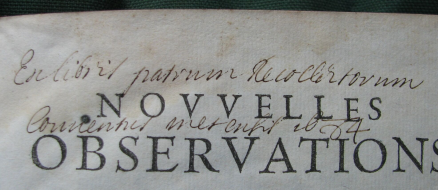 Ex libris patrum Recollectorum
NOVVELLES
Conventus metensis 1684
OBSERVATIONS